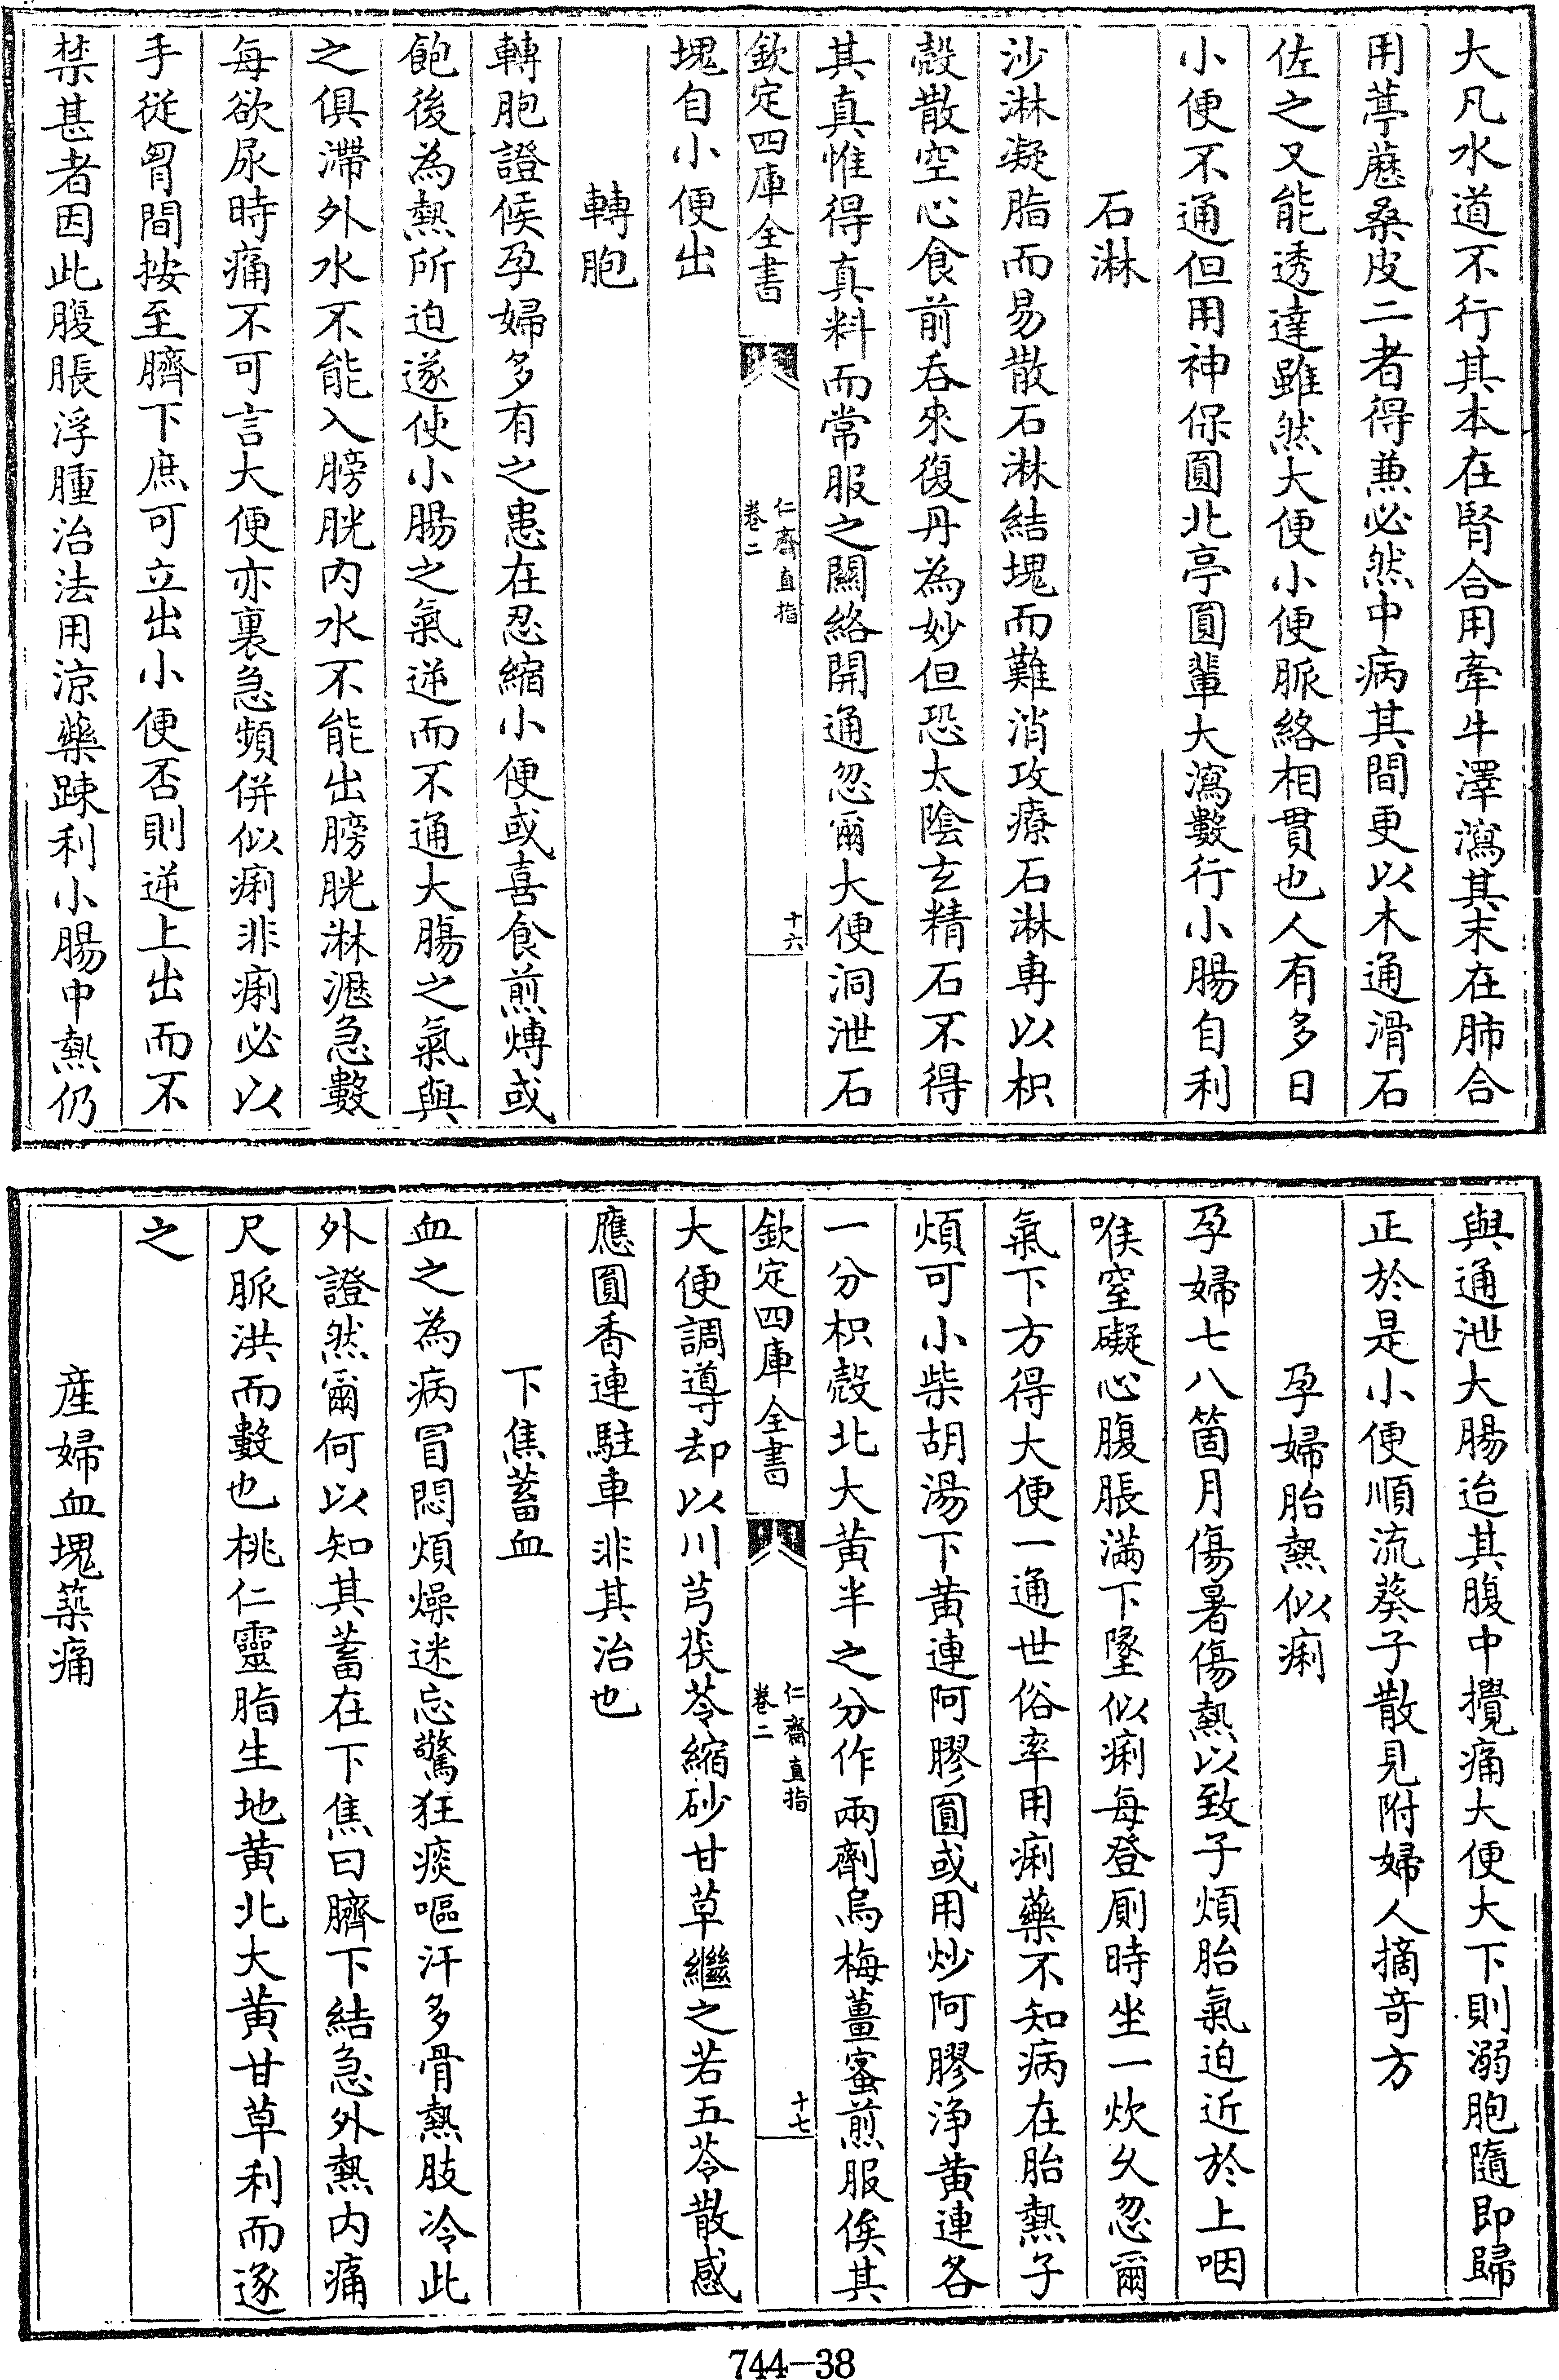 大凡水道不行其本在腎合用牽牛澤瀉其末在肺合
用葶藶桑皮二者得兼必然中病其間更以木通滑石
佐之又能透達雖然大便小便脈絡相貫也人有多日
小便不通但用神保圓北亭圓輩大瀉數行小腸自利
石淋
沙淋凝脂而易散石淋結塊而難消攻療石淋專以枳
殼散空心食前吞來復丹為妙但恐太陰玄精石不得
其真惟得真料而常服之關絡開通忽爾大便洞泄石
欽定四庫全書
仁齋直指
卷二
十六
塊自小便出
轉胞
轉胞證候孕婦多有之患在忍縮小便或喜食煎煿或
飽後為熱所迫遂使小腸之氣逆而不通大腸之氣與
之俱滯外水不能入膀胱內水不能出膀胱淋澀急數
每欲尿時痛不可言大便亦裏急頻併似痢非痢必以
手從胷間按至臍下庶可立出小便否則逆上出而不
禁甚者因此腹脹浮腫治法用涼藥踈利小腸中熱仍
與通泄大腸迨其腹中攪痛大便大下則溺胞隨即歸
正於是小便順流葵子散見附婦人摘奇方
孕婦胎熱似痢
孕婦七八箇月傷暑傷熱以致子煩胎氣迫近於上咽
喉窒礙心腹脹滿下墜似痢每登厠時坐一炊乆忽爾
氣下方得大便一通世俗率用痢藥不知病在胎熱子
煩可小柴胡湯下黃連阿膠圓或用炒阿膠淨黃連各
一分枳殼北大黃半之分作兩劑烏梅薑蜜煎服俟其
欽定四庫全書
仁齋直指
卷二
十七
大便調導却以川芎茯苓縮砂甘草繼之若五苓散感
應圓香連駐車非其治也
下焦蓄血
血之為病冒悶煩燥迷忘驚狂痰嘔汗多骨熱肢冷此
外證然爾何以知其蓄在下焦曰臍下結急外熱内痛
尺脈洪而數也桃仁靈脂生地黃北大黃甘草利而逐
之
産婦血塊築痛
744-38